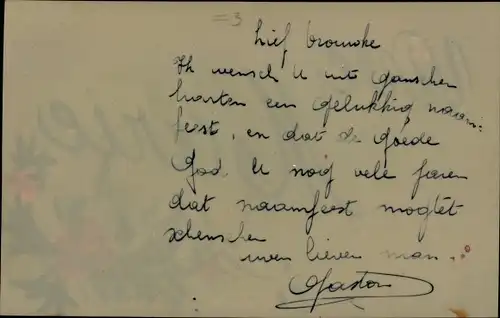 =3
Lief vrouwke
Ik wensch U uit ganscher
harten een gelukkig naam-
feest, en dat de goede
God U nog vele jaren
dat naamfeest mogt
schenken
uwen lieven man.
Gaston